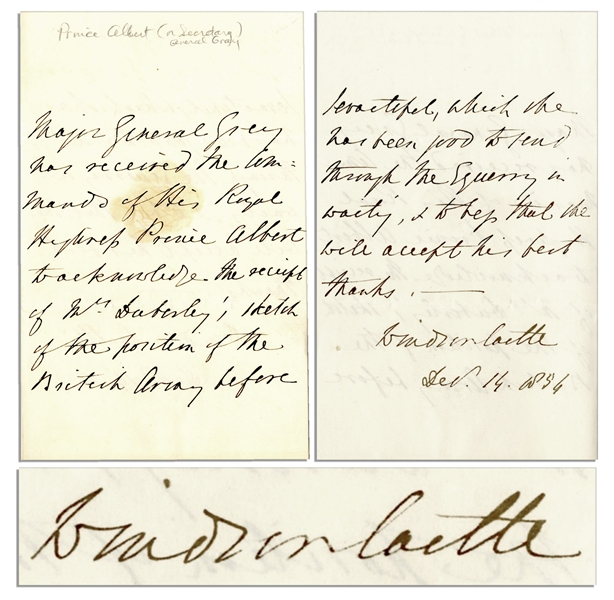 Prince Albert (or Secretary)
General Gray
Major General Grey
has received the Com=
mands of His Royal
Highness Prince Albert
to acknowledge the receipt
of Mrs Duberly's sketch
of the position of the
British Army before
Sevastopol, which she
has been good to send
through the Equerry in
waiting, & to beg that she
will accept his best
thanks. —
Windsor Castle
Dec. 14. 1854
Windsor Castle